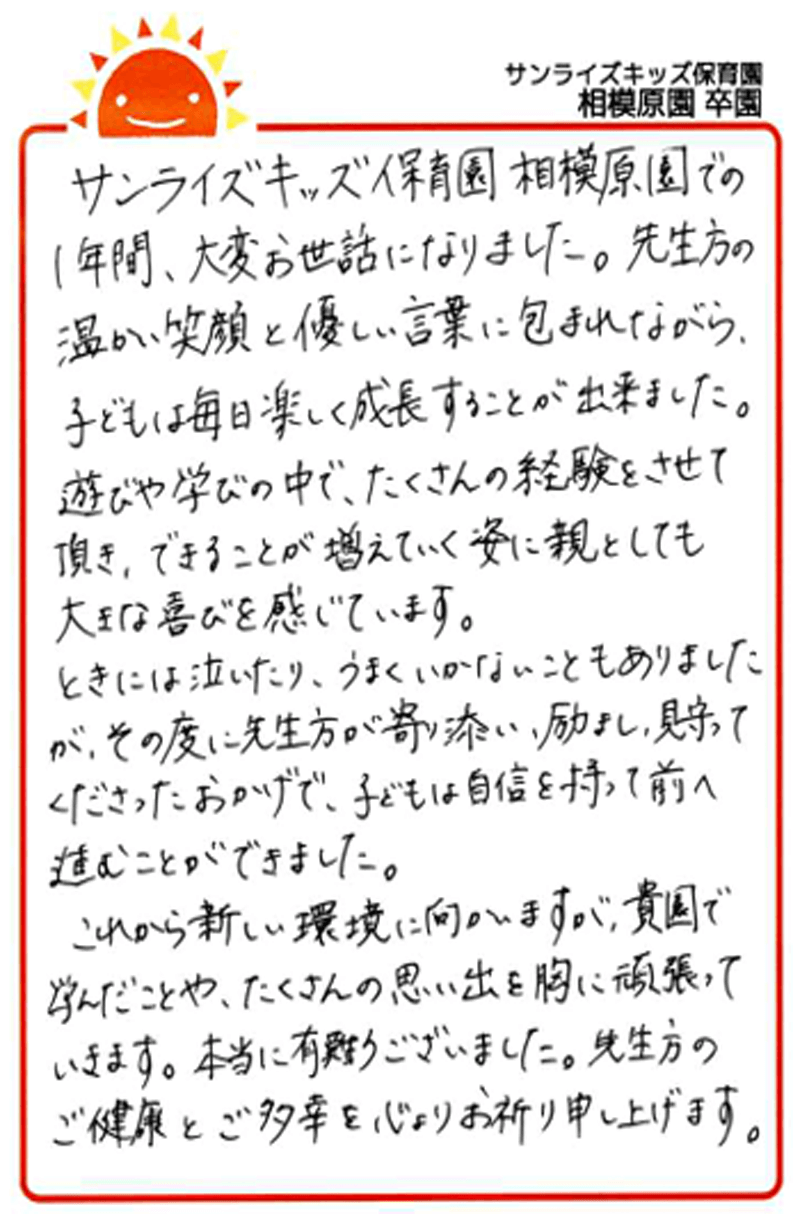 サンライズキッズ保育園
相模原園 卒園
サンライズキッズ保育園 相模原園での
1年間、大変お世話になりました。先生方の
温かい笑顔と優しい言葉に包まれながら、
子どもは毎日楽しく成長することが出来ました。
遊びや学びの中で、たくさんの経験をさせて
頂き、できることが増えていく姿に親としても
大きな喜びを感じています。
ときには泣いたり、うまくいかないこともありました
が、その度に先生方が寄り添い、励まし、見守って
くださったおかげで、子どもは自信を持って前へ
進むことができました。
これから新しい環境に向かいますが、貴園で
学んだことや、たくさんの思い出を胸に頑張って
いきます。本当に有難うございました。先生方の
ご健康とご多幸を心よりお祈り申し上げます。